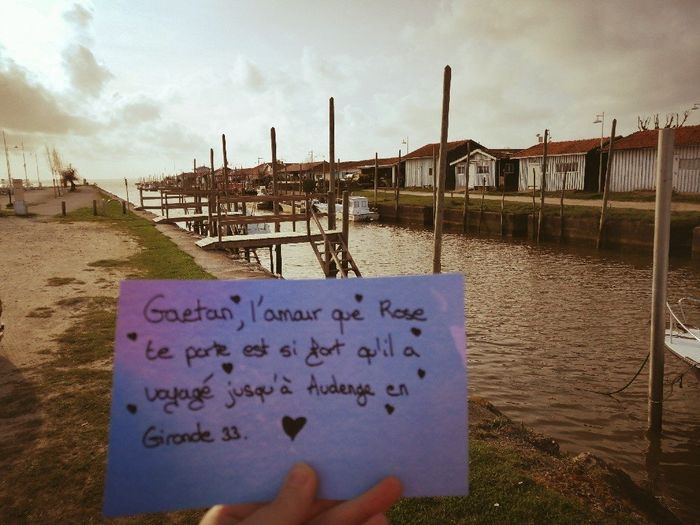 Gaetan, l'amour que Rose
te porte est si fort qu'il a
voyagé jusqu'à Audenge en
Gironde 33.